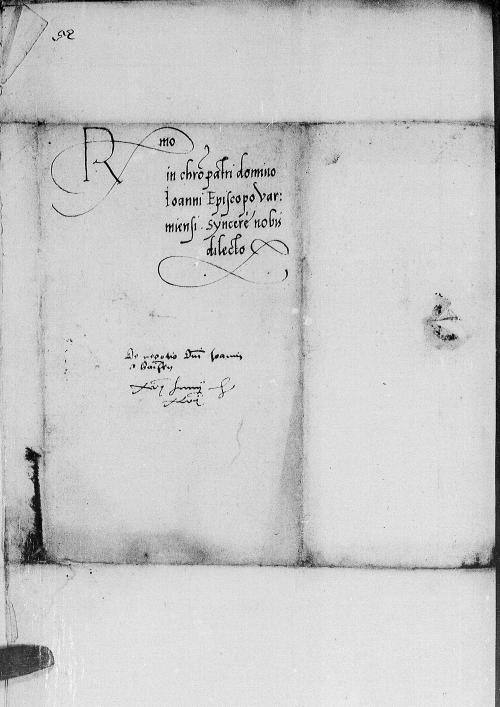 92
Rmo
in chro patri domino
Ioanni Episcopo Var:
miensi. Syncere nobis
dilecto
De negotio Dni Joannis
a